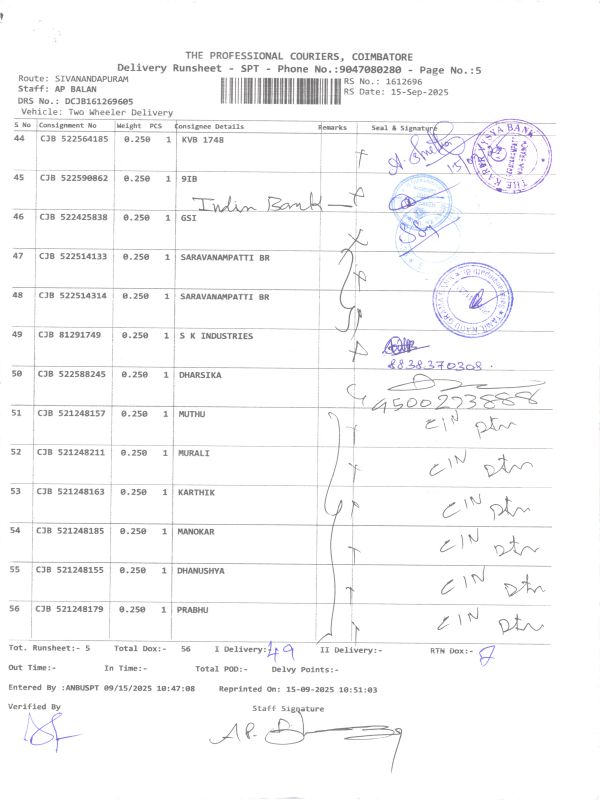 THE PROFESSIONAL COURIERS, COIMBATORE
Delivery Runsheet - SPT - Phone No.:9047080280 - Page No.:5
Route: SIVANANDAPURAM
RS No.: 1612696
Staff: AP BALAN
RS Date: 15-Sep-2025
DRS No.: DCJB161269605
Vehicle: Two Wheeler Delivery
S No Consignment No Weight PCS Consignee Details Remarks Seal & Signature
44 CJB 522564185 0.250 1 KVB 1748
THE KARUR VYSYA BANK
45 CJB 522590862 0.250 1 9IB
Indin Bank
46 CJB 522425838 0.250 1 GSI
47 CJB 522514133 0.250 1 SARAVANAMPATTI BR
48 CJB 522514314 0.250 1 SARAVANAMPATTI BR
49 CJB 81291749 0.250 1 S K INDUSTRIES
8838370308.
50 CJB 522588245 0.250 1 DHARSIKA
9500273888
51 CJB 521248157 0.250 1 MUTHU CIN ptn
52 CJB 521248211 0.250 1 MURALI CIN ptn
53 CJB 521248163 0.250 1 KARTHIK CIN ptn
54 CJB 521248185 0.250 1 MANOKAR CIN ptn
55 CJB 521248155 0.250 1 DHANUSHYA CIN ptn
56 CJB 521248179 0.250 1 PRABHU CIN ptn
Tot. Runsheet:- 5 Total Dox:- 56 I Delivery:- 49 II Delivery:- RTN Dox:-
Out Time:- In Time:- Total POD:- Delvy Points:-
Entered By :ANBUSPT 09/15/2025 10:47:08 Reprinted On: 15-09-2025 10:51:03
Verified By Staff Signature
AP.